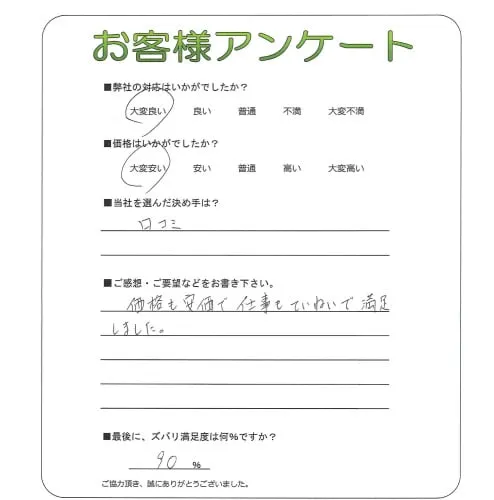 お客様アンケート
■弊社の対応はいかがでしたか？
大変良い 良い 普通 不満 大変不満
■価格はいかがでしたか？
大変安い 安い 普通 高い 大変高い
■当社を選んだ決め手は？
口コミ
■ご感想・ご要望などをお書き下さい。
価格も安価で仕事もていねいで満足
しました。
■最後に、ズバリ満足度は何％ですか？
90 ％
ご協力頂き、誠にありがとうございました。